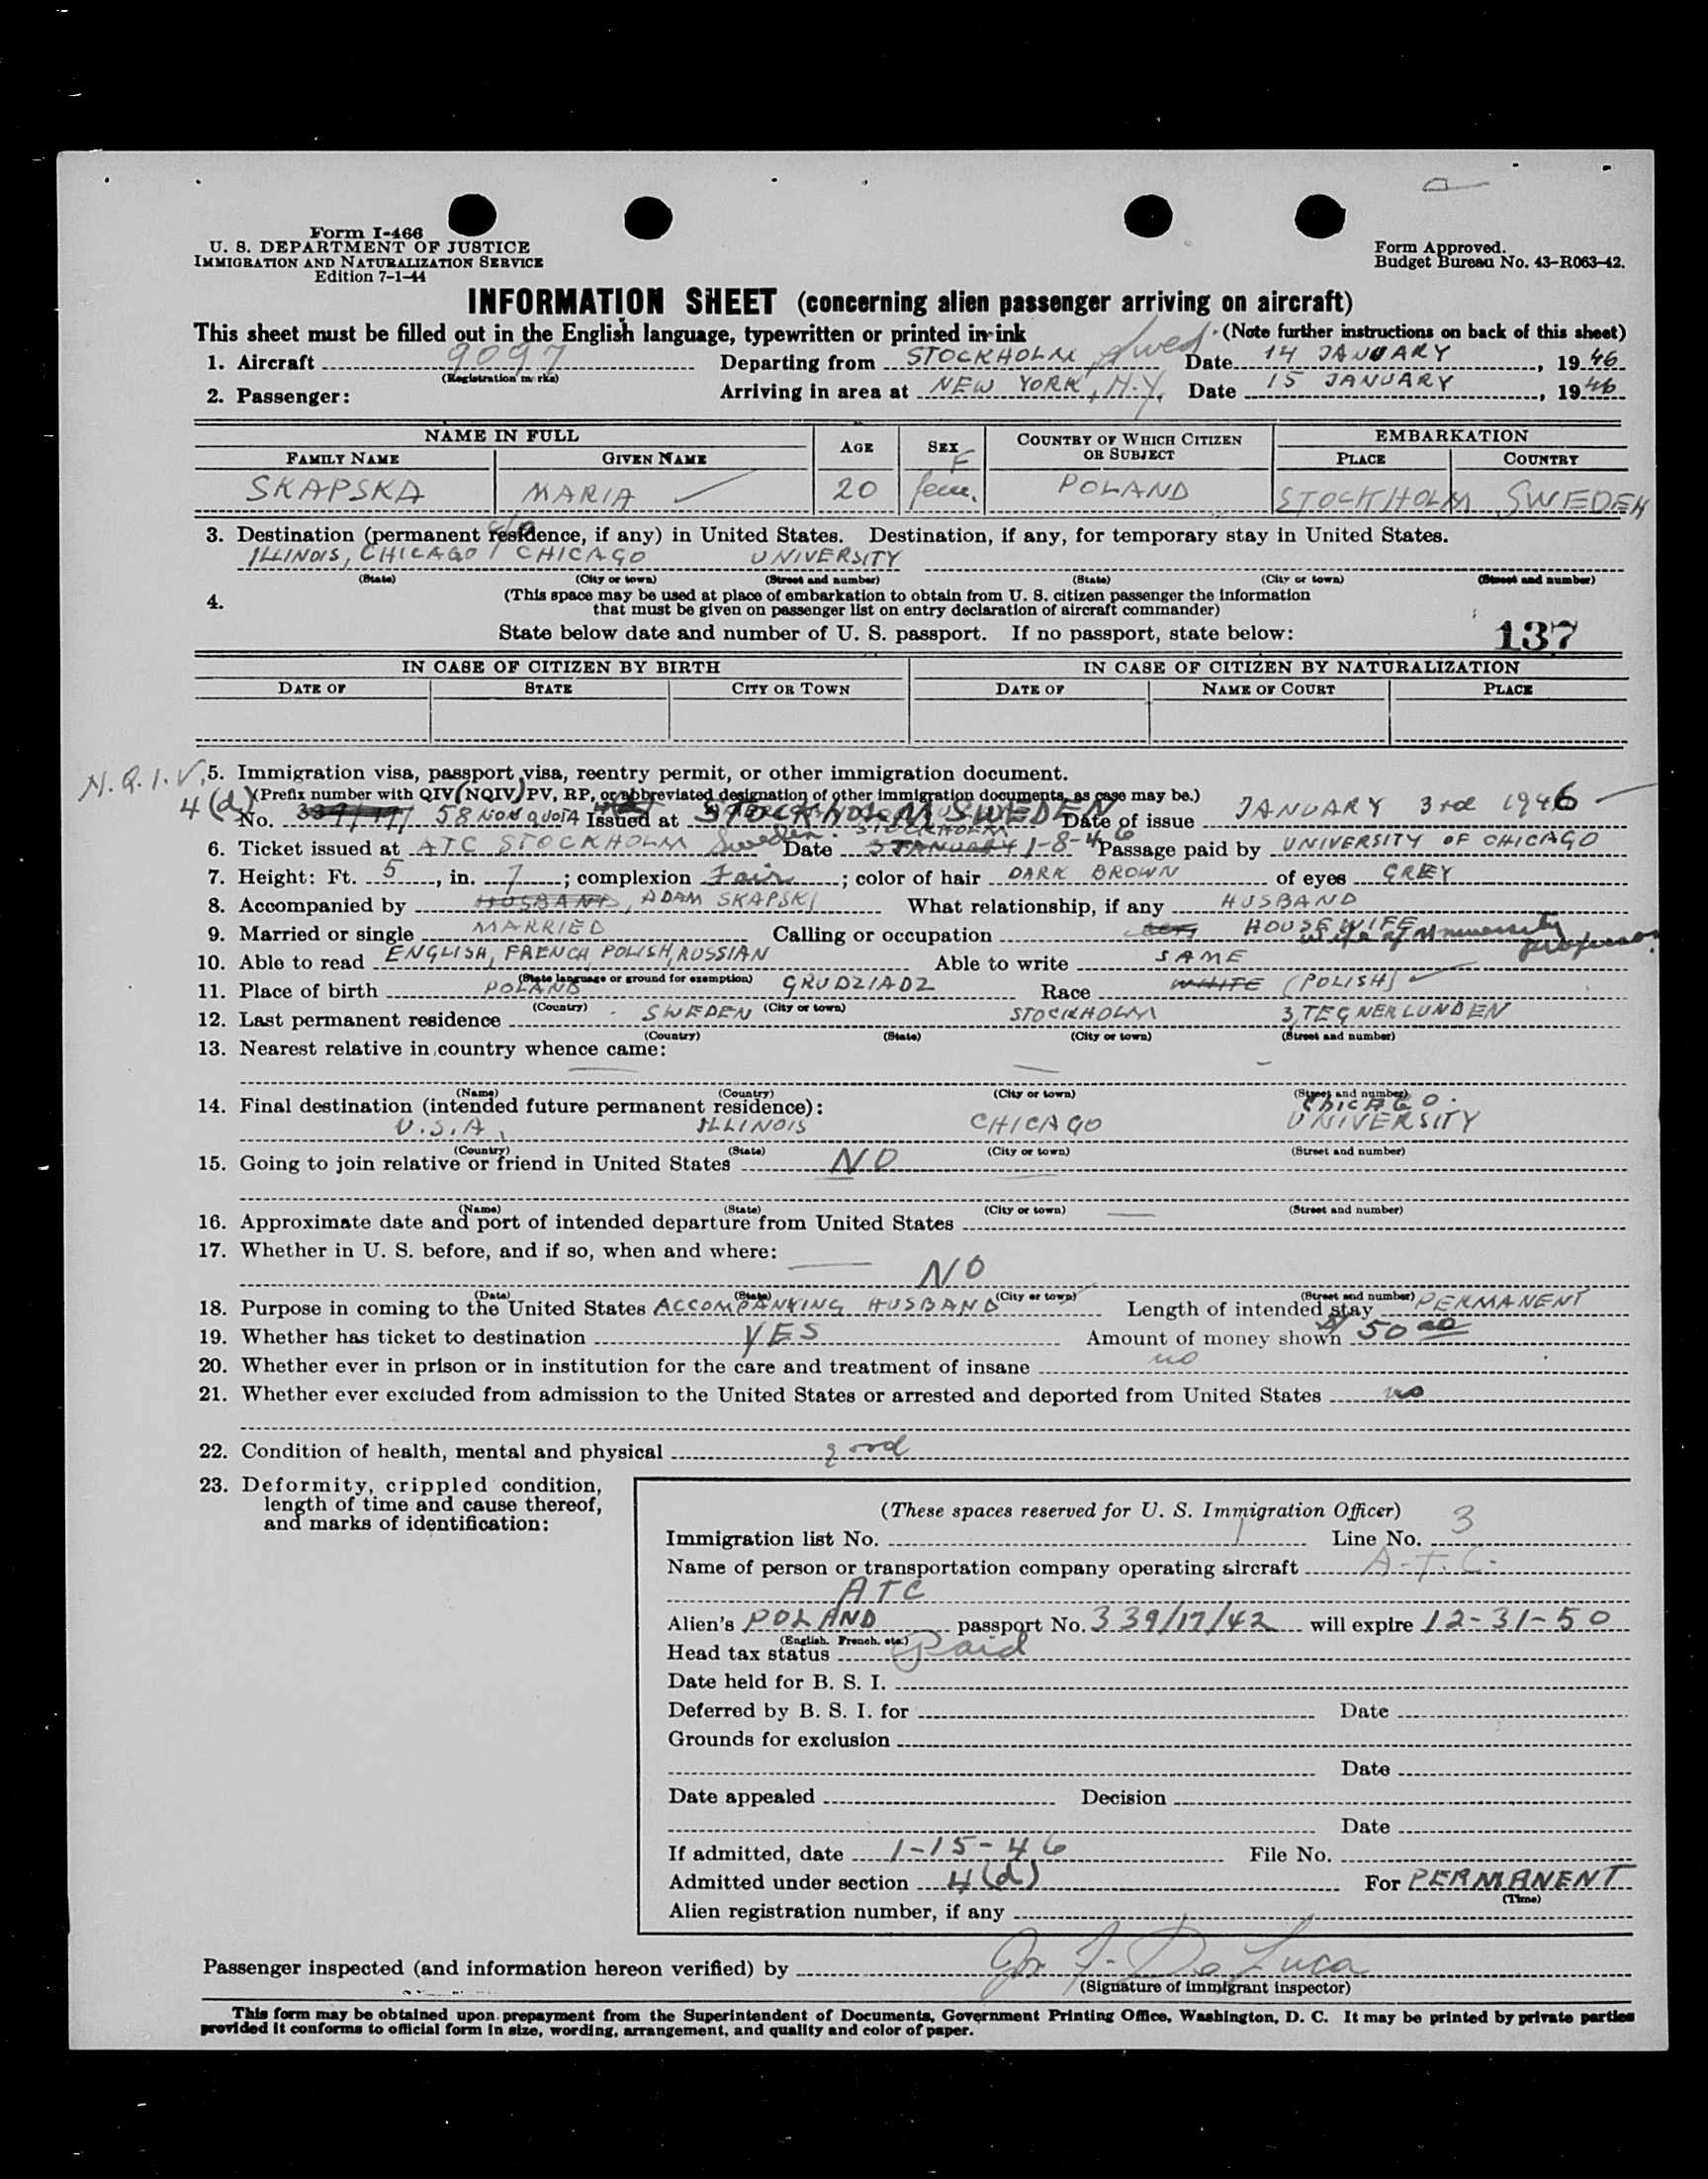 Form I-466
U. S. DEPARTMENT OF JUSTICE
IMMIGRATION AND NATURALIZATION SERVICE
Edition 7-1-44
Form Approved.
Budget Bureau No. 43-R063-42.
INFORMATION SHEET (concerning alien passenger arriving on aircraft)
This sheet must be filled out in the English language, typewritten or printed in ink (Note further instructions on back of this sheet)
1. Aircraft 9097 Departing from STOCKHOLM, Swed. Date 14 JANUARY, 1946
(Registration marks)
2. Passenger: Arriving in area at NEW YORK, N.Y. Date 15 JANUARY, 1946
NAME IN FULL AGE SEX COUNTRY OF WHICH CITIZEN OR SUBJECT EMBARKATION
FAMILY NAME GIVEN NAME PLACE COUNTRY
F
SKAPSKA MARIA 20 fem. POLAND STOCKHOLM SWEDEN
3. Destination (permanent residence, if any) in United States. Destination, if any, for temporary stay in United States.
ILLINOIS, CHICAGO / CHICAGO UNIVERSITY
(State) (City or town) (Street and number) (State) (City or town) (Street and number)
4. (This space may be used at place of embarkation to obtain from U. S. citizen passenger the information
that must be given on passenger list on entry declaration of aircraft commander)
State below date and number of U. S. passport. If no passport, state below: 137
IN CASE OF CITIZEN BY BIRTH IN CASE OF CITIZEN BY NATURALIZATION
DATE OF STATE CITY OR TOWN DATE OF NAME OF COURT PLACE
N.Q.I.V. 5. Immigration visa, passport visa, reentry permit, or other immigration document.
4(d) (Prefix number with QIV (NQIV) PV, RP, or abbreviated designation of other immigration documents, as case may be.)
No. 58 NON QUOTA Issued at STOCKHOLM SWEDEN Date of issue JANUARY 3rd 1946
STOCKHOLM
6. Ticket issued at ATC STOCKHOLM Sweden Date 3 JANUARY 1-8-46 Passage paid by UNIVERSITY OF CHICAGO
7. Height: Ft. 5, in. 7; complexion Fair; color of hair DARK BROWN of eyes GREY
8. Accompanied by HUSBAND, ADAM SKAPSKI What relationship, if any HUSBAND
9. Married or single MARRIED Calling or occupation HOUSEWIFE
wife of University professor
10. Able to read ENGLISH, FRENCH, POLISH, RUSSIAN Able to write SAME
(State language or ground for exemption)
11. Place of birth POLAND GRUDZIADZ Race WHITE (POLISH)
(Country) (City or town)
12. Last permanent residence SWEDEN STOCKHOLM 3, TEGNERLUNDEN
(Country) (State) (City or town) (Street and number)
13. Nearest relative in country whence came:
(Name) (Country) (City or town) (Street and number)
14. Final destination (intended future permanent residence): CHICAGO.
U.S.A, ILLINOIS CHICAGO UNIVERSITY
(Country) (State) (City or town) (Street and number)
15. Going to join relative or friend in United States NO
(Name) (State) (City or town) (Street and number)
16. Approximate date and port of intended departure from United States
17. Whether in U. S. before, and if so, when and where:
NO
(Date) (State) (City or town) (Street and number)
18. Purpose in coming to the United States ACCOMPANYING HUSBAND Length of intended stay PERMANENT
19. Whether has ticket to destination YES Amount of money shown $ 50 00
20. Whether ever in prison or in institution for the care and treatment of insane no
21. Whether ever excluded from admission to the United States or arrested and deported from United States no
22. Condition of health, mental and physical good
23. Deformity, crippled condition,
length of time and cause thereof,
and marks of identification:
(These spaces reserved for U. S. Immigration Officer)
Immigration list No. 1 Line No. 3
Name of person or transportation company operating aircraft A.T.C.
ATC
Alien's POLAND passport No. 339/17/42 will expire 12-31-50
(English, French, etc.)
Head tax status Paid
Date held for B. S. I.
Deferred by B. S. I. for Date
Grounds for exclusion
Date
Date appealed Decision
Date
If admitted, date 1-15-46 File No.
Admitted under section 4(d) For PERMANENT
(Time)
Alien registration number, if any
Passenger inspected (and information hereon verified) by F. De Luca
(Signature of immigrant inspector)
This form may be obtained upon prepayment from the Superintendent of Documents, Government Printing Office, Washington, D. C. It may be printed by private parties
provided it conforms to official form in size, wording, arrangement, and quality and color of paper.